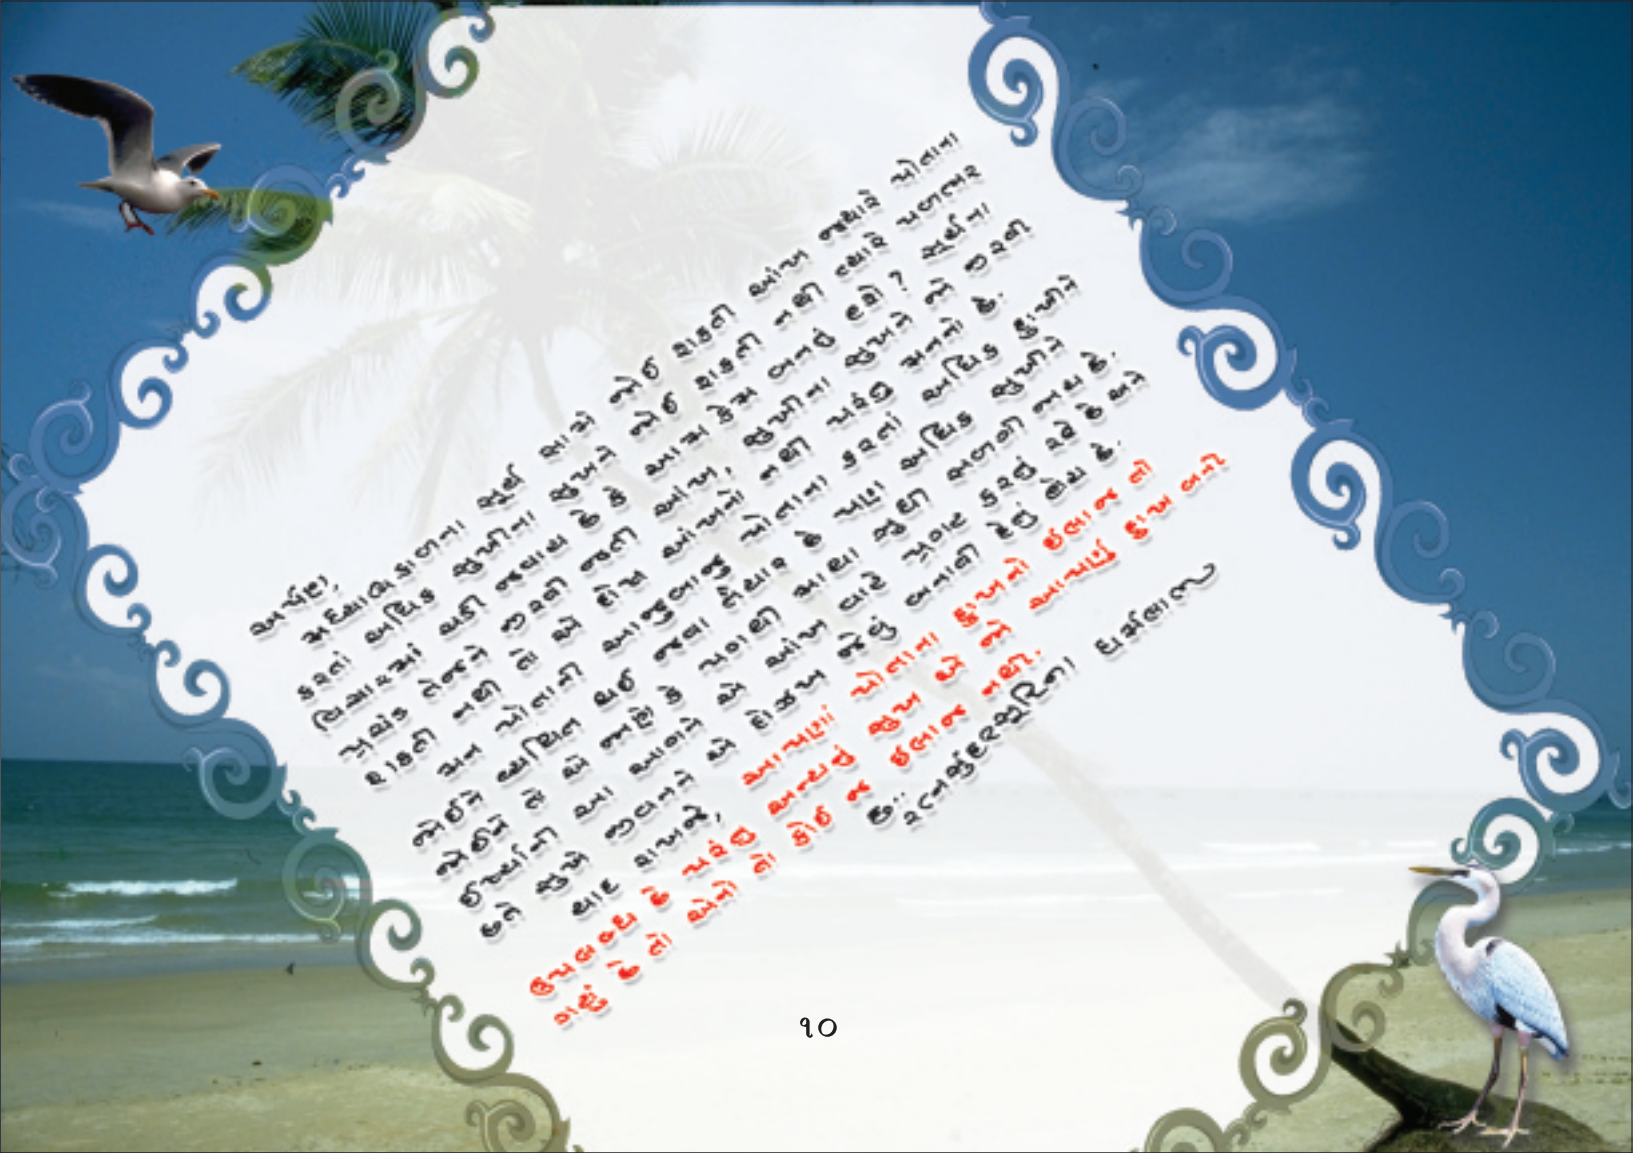 અર્પણ,
મધ્યાહ્નકાળના સૂર્ય સામે જોઈ શકતી આંખ જ્યારે પોતાના
કરતાં અધિક સુખીના સુખને જોઈ શકતી નથી ત્યારે પળભર
વિચારમાં પડી જવાય છે કે આમ કેમ બનતું હશે ? સૂર્યના
પ્રચંડ તેજને જીરવી જતી આંખ, સુખીના સુખને જો જીરવી
શકતી નથી તો એ દોષ આંખનો નથી પરંતુ મનનો છે.
મન પોતાની આજુબાજુ પોતાના કરતાં અધિક દુઃખીને
જોઈને વ્યથિત થઈ જવા તૈયાર છે પણ અધિક સુખીને
જોઈને તો એ જાણે કે પગથી માથા સુધી સળગી જાય છે.
ઈર્ષ્યાની આ આગને એ આંખ વાટે પ્રગટ કરતું રહે છે અને
છતે સુખે જીવનને એ દોજખ જેવું બનાવી દેતું હોય છે.
યાદ રાખજે, આપણાં પોતાના દુઃખનો ઈલાજ તો
ઉપલબ્ધ છે પરંતુ અન્યનું સુખ એ જો આપણું દુઃખ બની
ગયું છે તો એનો તો કોઈ જ ઈલાજ નથી.
રત્નસુંદરસૂરિના ધર્મલાભ
૧૦